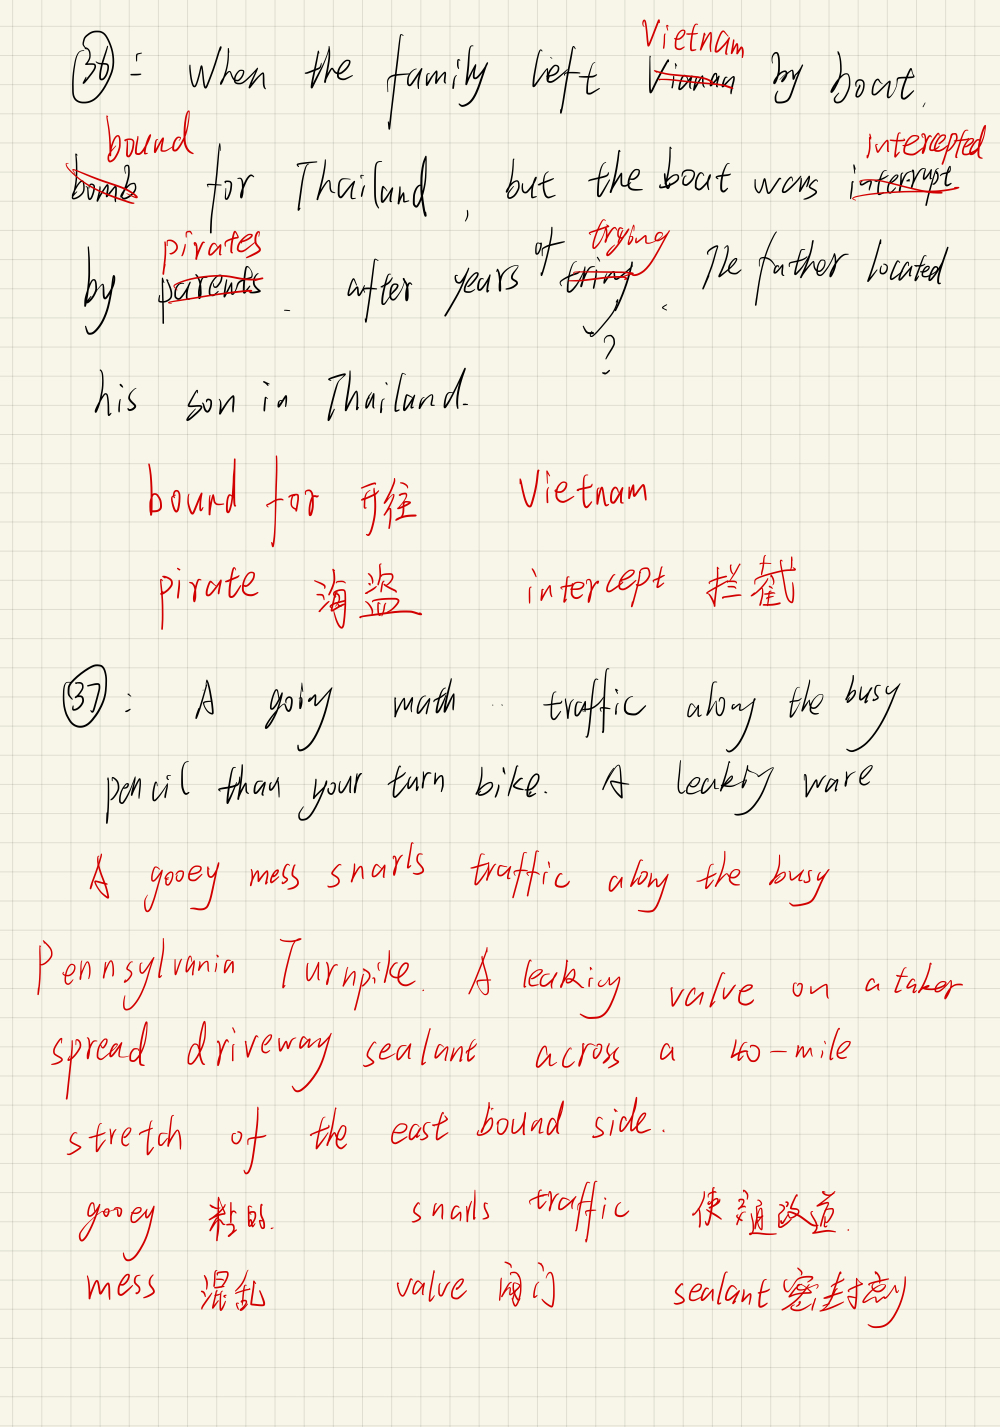 Vietnam
36: When the family left Vianan by boat,
bound intercepted
bomb for Thailand, but the boat was interrupt
pirates trying
by parents. after years of tring. The father located
?
his son in Thailand.
bound for 开往 Vietnam
pirate 海盗 intercept 拦截
37: A going math traffic along the busy
pencil than your turn bike. A leaking ware
A gooey mess snarls traffic along the busy
Pennsylvania Turnpike. A leaking valve on a taker
spread driveway sealant across a 40-mile
stretch of the east bound side.
gooey 粘的. snarls traffic 使交通改道.
mess 混乱 valve 阀门 sealant 密封剂